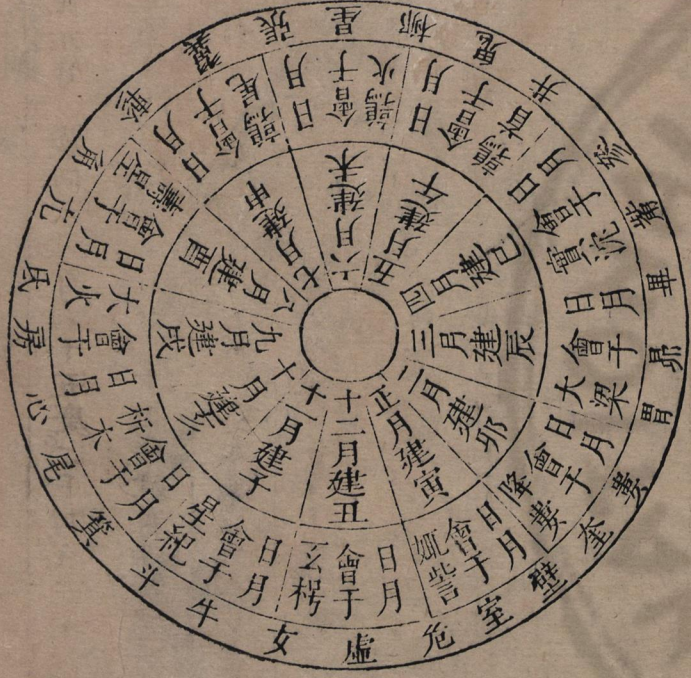 正月建寅
二月建卯
三月建辰
四月建巳
五月建午
六月建未
七月建申
八月建酉
九月建戌
十月建亥
十一月建子
十二月建丑
日月會于娵訾
日月會于降婁
日月會于大梁
日月會于實沈
日月會于鶉首
日月會于鶉火
日月會于鶉尾
日月會于壽星
日月會于大火
日月會于析木
日月會于星紀
日月會于玄枵
角亢氐房心尾箕斗牛女虛危室壁奎婁胃昴畢觜參井鬼柳星張翼軫